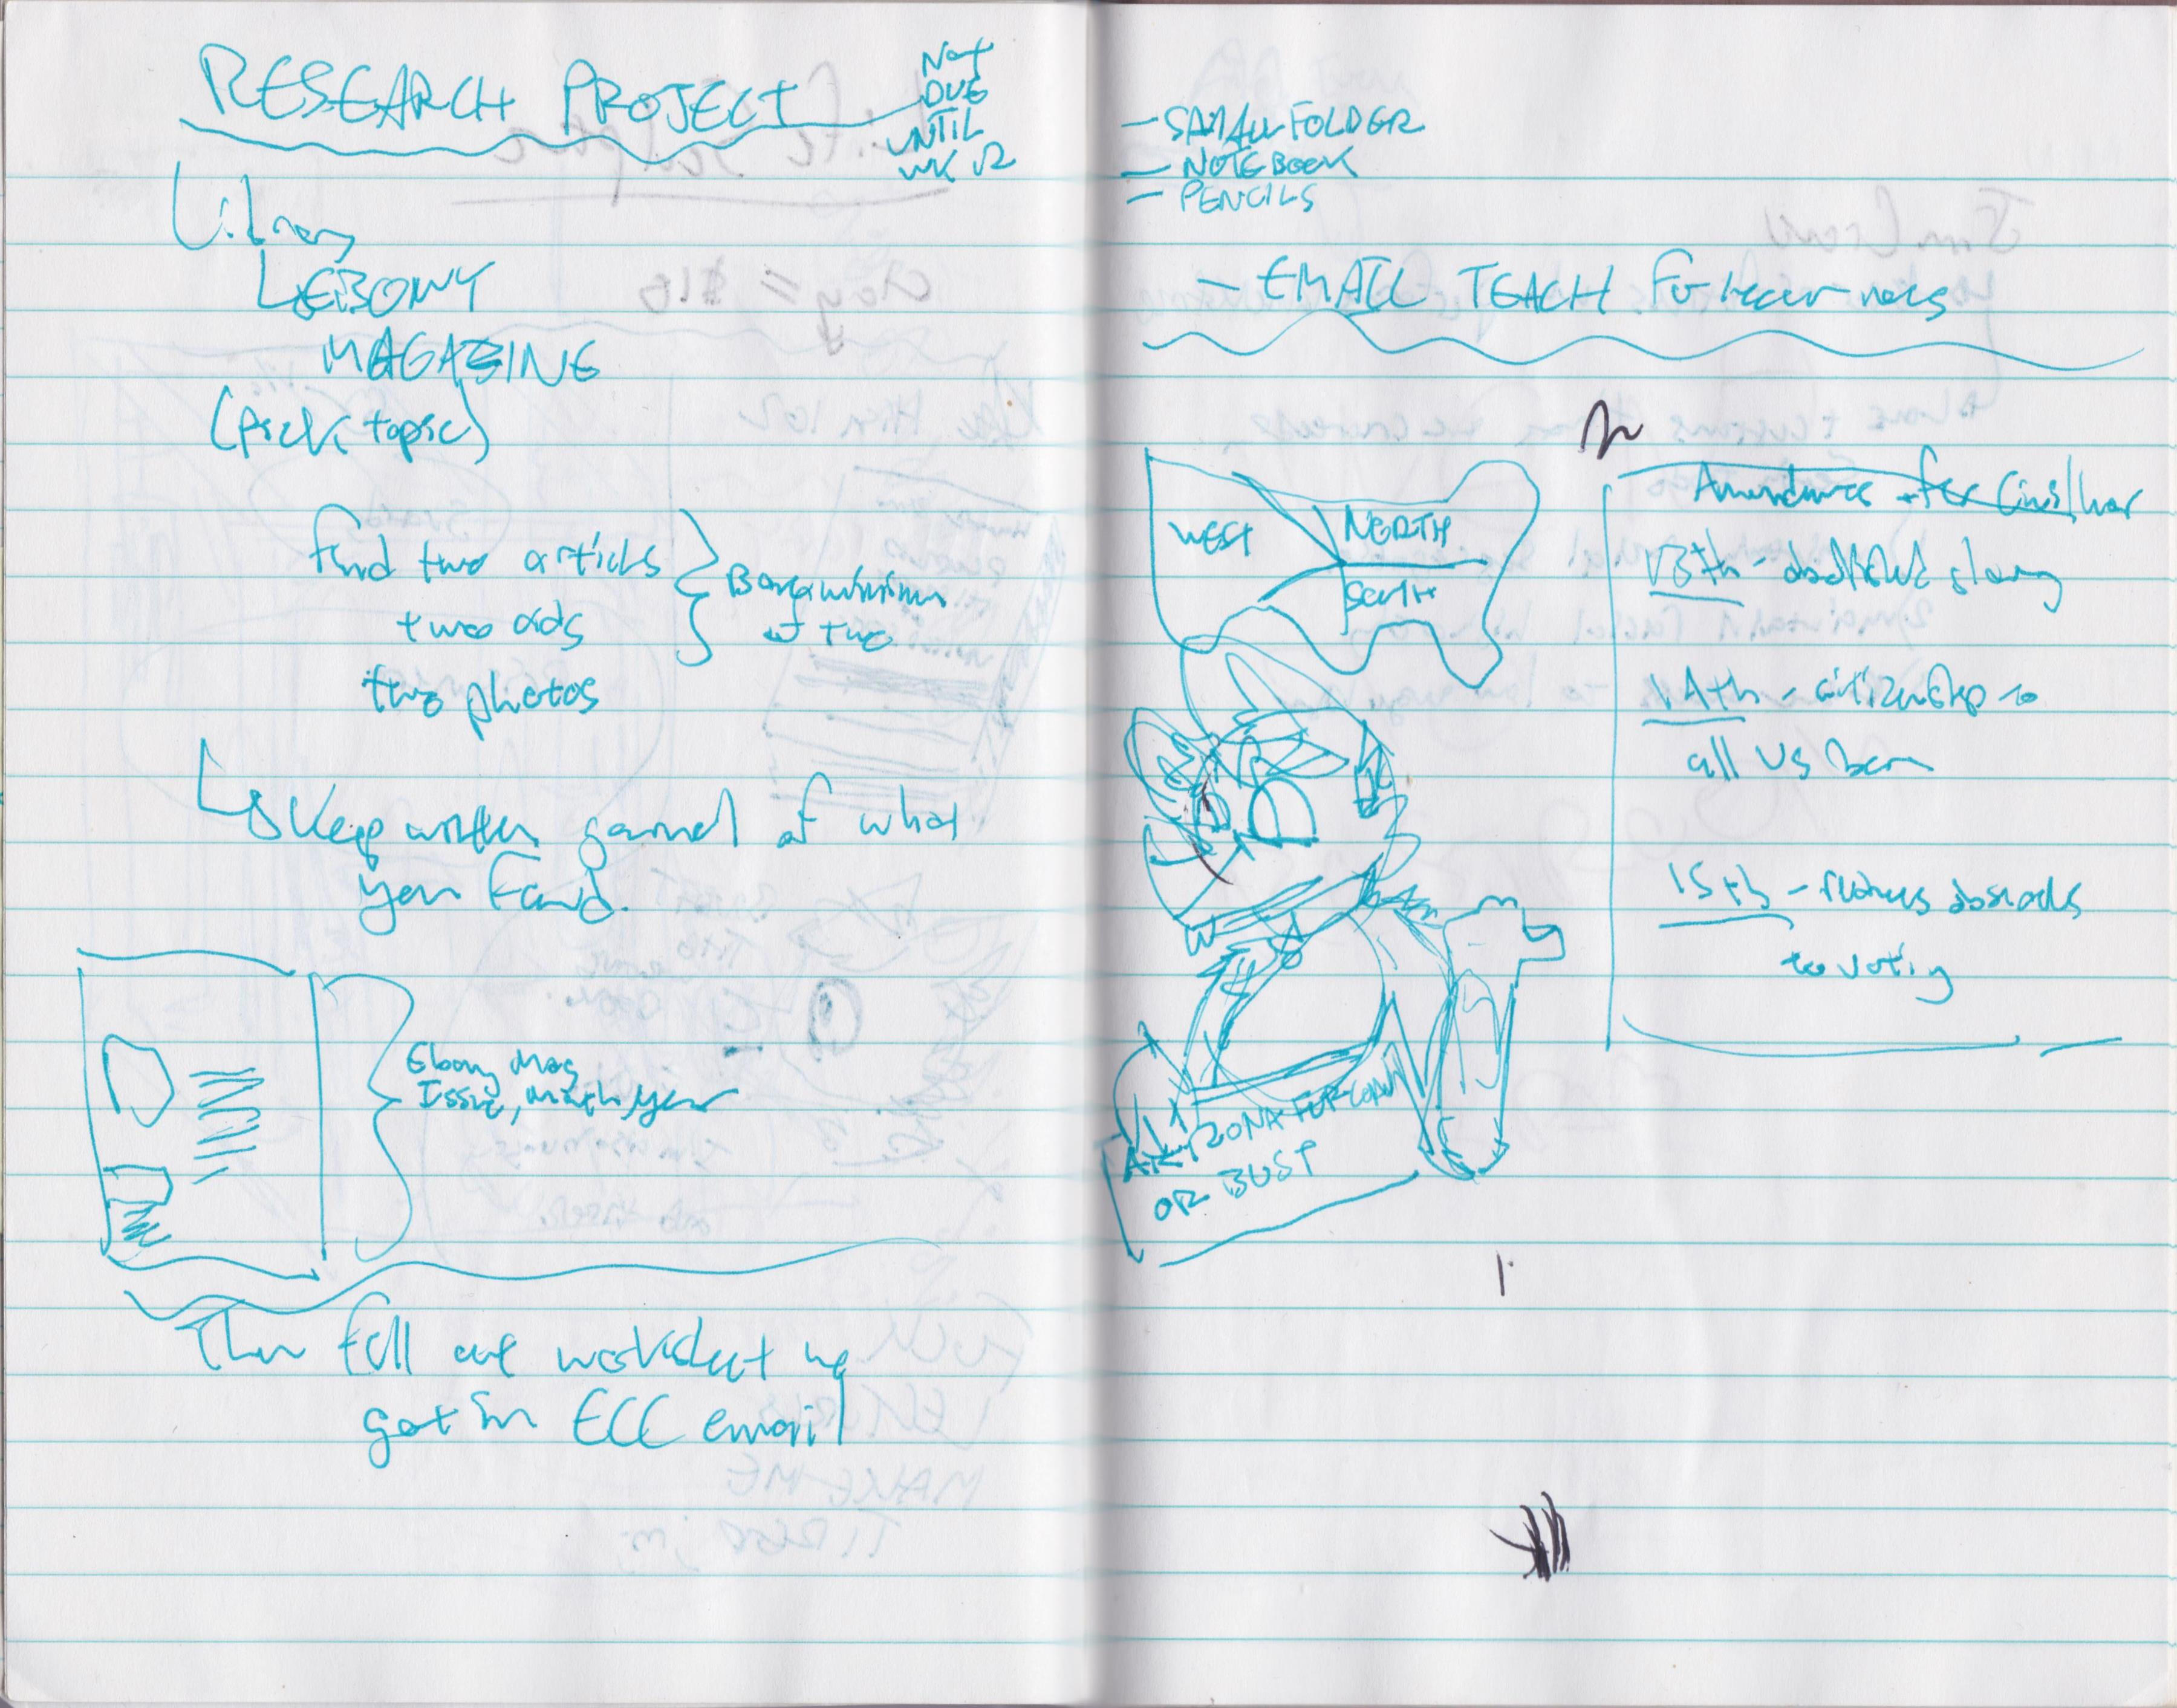 RESEARCH PROJECT
NOT
DUE
UNTIL
WK 12
Library
EBONY
MAGAZINE
(Pick topic)
find two articles
two ads
two photos
Bare minimum
of two
Keep written journal of what
you found.
Ebony Mag
Issue, month, year
Then fill out worksheet we
got in ECC email
- SMALL FOLDER
- NOTEBOOK
- PENCILS
- EMAIL TEACH
WEST
NORTH
SOUTH
Amendments after Civil War
13th - abolished slavery
14th - citizenship to
all US born
15th -
to voting
ARIZONA FUR CON
OR BUST